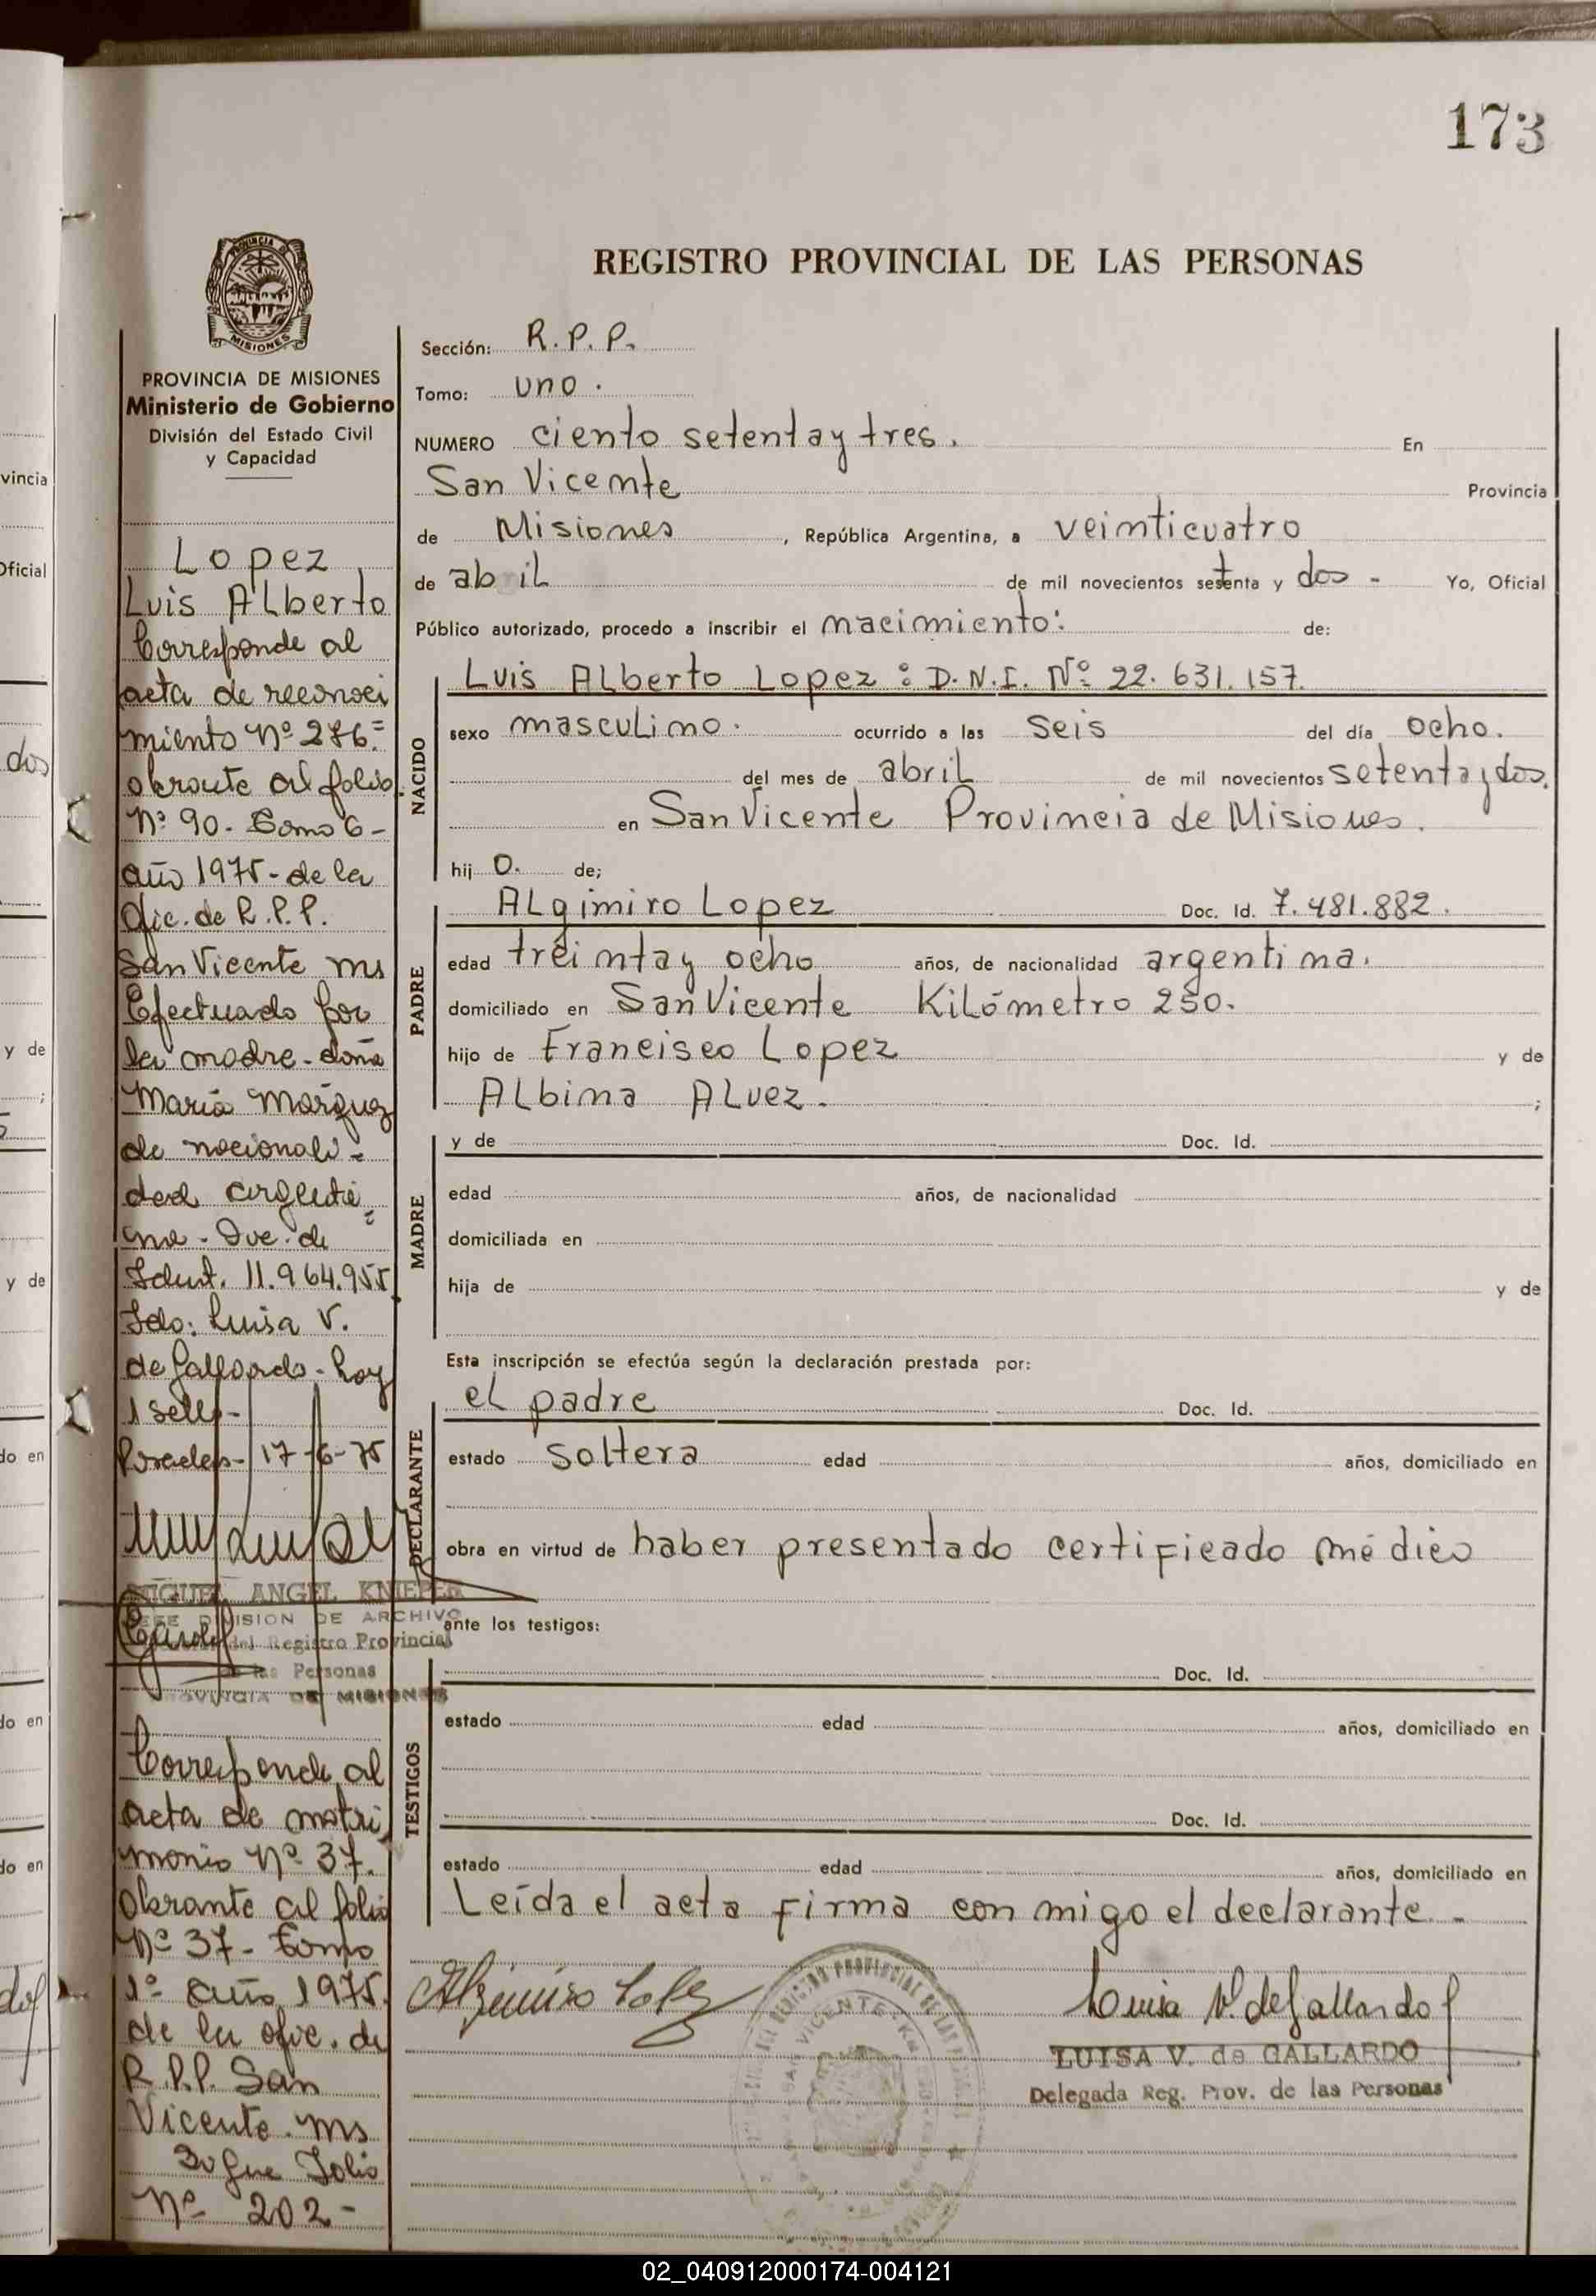 173
REGISTRO PROVINCIAL DE LAS PERSONAS
PROVINCIA DE MISIONES
Ministerio de Gobierno
División del Estado Civil
y Capacidad
Lopez
Luis Alberto
Corresponde al
acta de reconoci
miento Nº 276.=
obrante al folio
Nº 90 - Tomo 6 -
año 1975 - de la
Ofic. de R.P.P.
San Vicente Ms
Efectuado por
la madre - doña
Maria Marquez
de nacionali-
dad argenti=
na - Doc. de
Ident. 11.964.955
Fdo: Luisa V.
de Gallardo - hay
1 sello -
Posadas - 17-6-75
MIGUEL ANGEL KNIEPER
JEFE DIVISION DE ARCHIVO
del Registro Provincial
de las Personas
PROVINCIA DE MISIONES
Corresponde al
acta de matri
monio Nº 37.
Obrante al folio
Nº 37 - Tomo
1º año 1975.
de la ofic. de
R.P.P. San
Vicente. Ms
Folio
Nº 202 -
Sección: R.P.P.
Tomo: uno.
NUMERO ciento setenta y tres. En
San Vicente Provincia
de Misiones, República Argentina, a veinticuatro
de abril de mil novecientos setenta y dos - Yo, Oficial
Público autorizado, procedo a inscribir el nacimiento: de:
NACIDO
Luis Alberto Lopez: D.N.I. Nº 22.631.157.
sexo masculino. ocurrido a las seis del día ocho.
del mes de abril de mil novecientos setenta y dos.
en San Vicente Provincia de Misiones.
hij o. de;
PADRE
ALgimiro Lopez Doc. Id. 7.481.882.
edad treinta y ocho años, de nacionalidad argentina.
domiciliado en San Vicente Kilómetro 250.
hijo de Francisco Lopez y de
Albina Alvez. ;
MADRE
y de Doc. Id.
edad años, de nacionalidad
domiciliada en
hija de y de
Esta inscripción se efectúa según la declaración prestada por:
DECLARANTE
el padre Doc. Id.
estado soltera edad años, domiciliado en
obra en virtud de haber presentado certificado médico
ante los testigos:
TESTIGOS
Doc. Id.
estado edad años, domiciliado en
Doc. Id.
estado edad años, domiciliado en
Leída el acta firma con migo el declarante. -
Algimiro Lopez
Luisa V. de Gallardo
LUISA V. de GALLARDO
Delegada Reg. Prov. de las Personas
02_040912000174-004121